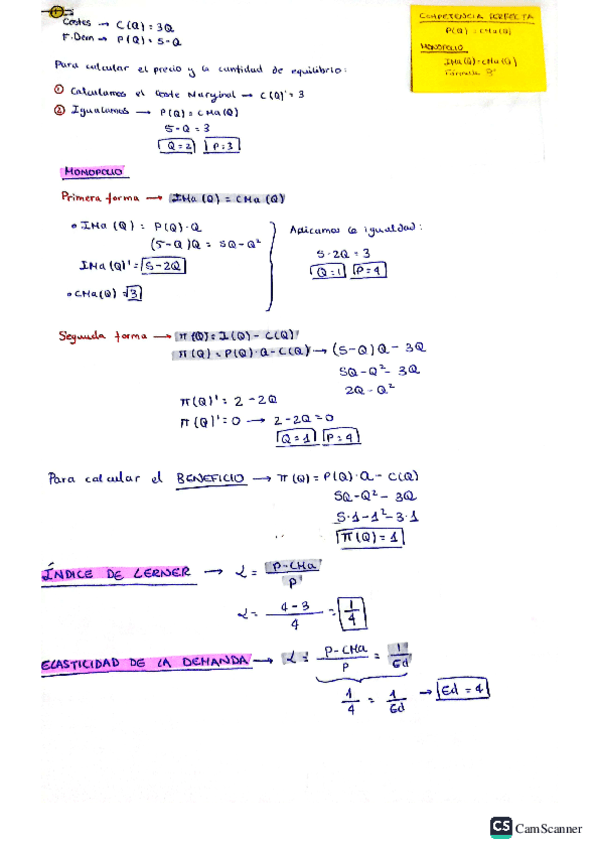 ①
Costes → C(Q) = 3Q
F. Dem → P(Q) = 5-Q
COMPETENCIA PERFECTA
P(Q) = CMa(Q)
MONOPOLIO
IMa(Q) = CMa(Q)
Para calcular el precio y la cantidad de equilibrio:
① Calculamos el Coste Marginal → C(Q)' = 3
② Igualamos → P(Q) = CMa(Q)
5-Q = 3
Q=2 P=3
MONOPOLIO
Primera forma → IMa(Q) = CMa(Q)
• IMa(Q) = P(Q)·Q
(5-Q)Q = 5Q-Q²
IMa(Q)' = 5-2Q
• CMa(Q) = 3
Aplicamos la igualdad:
5-2Q = 3
Q=1 P=4
Segunda forma → π(Q) = I(Q) - C(Q)
π(Q) = P(Q)·Q - C(Q) → (5-Q)Q - 3Q
5Q-Q²- 3Q
2Q-Q²
π(Q)' = 2-2Q
π(Q)' = 0 → 2-2Q=0
Q=1 P=4
Para calcular el BENEFICIO → π(Q) = P(Q)·Q - C(Q)
5Q-Q²- 3Q
5·1-1²-3·1
π(Q) = 1
ÍNDICE DE LERNER → L = P-CMa / P
L = 4-3 / 4 = 1/4
ELASTICIDAD DE LA DEMANDA → L = P-CMa / P = 1 / Ed
1/4 = 1/Ed → Ed = 4
CS CamScanner